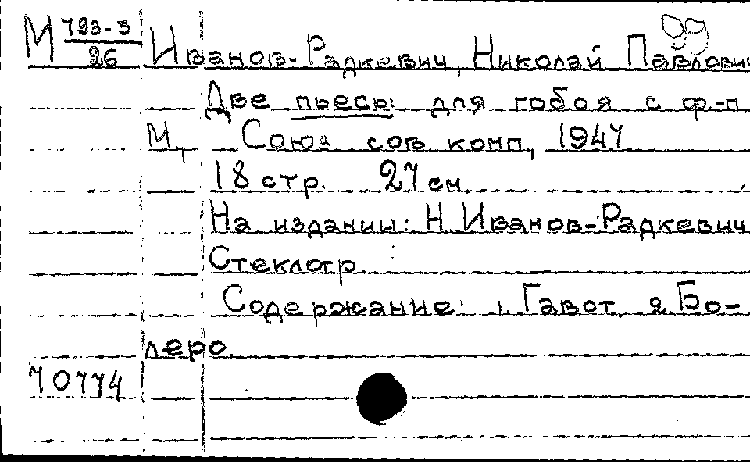 М 793-3
26
Иванов-Радкевич, Николай Павлович
Две пьесы для гобоя с ф-п
М, Союз сов комп, 1947
18 стр. 27 см.
На издании: Н Иванов-Радкевич
Стеклогр.
Содержание: 1. Гавот. 2. Бо-
леро
70774